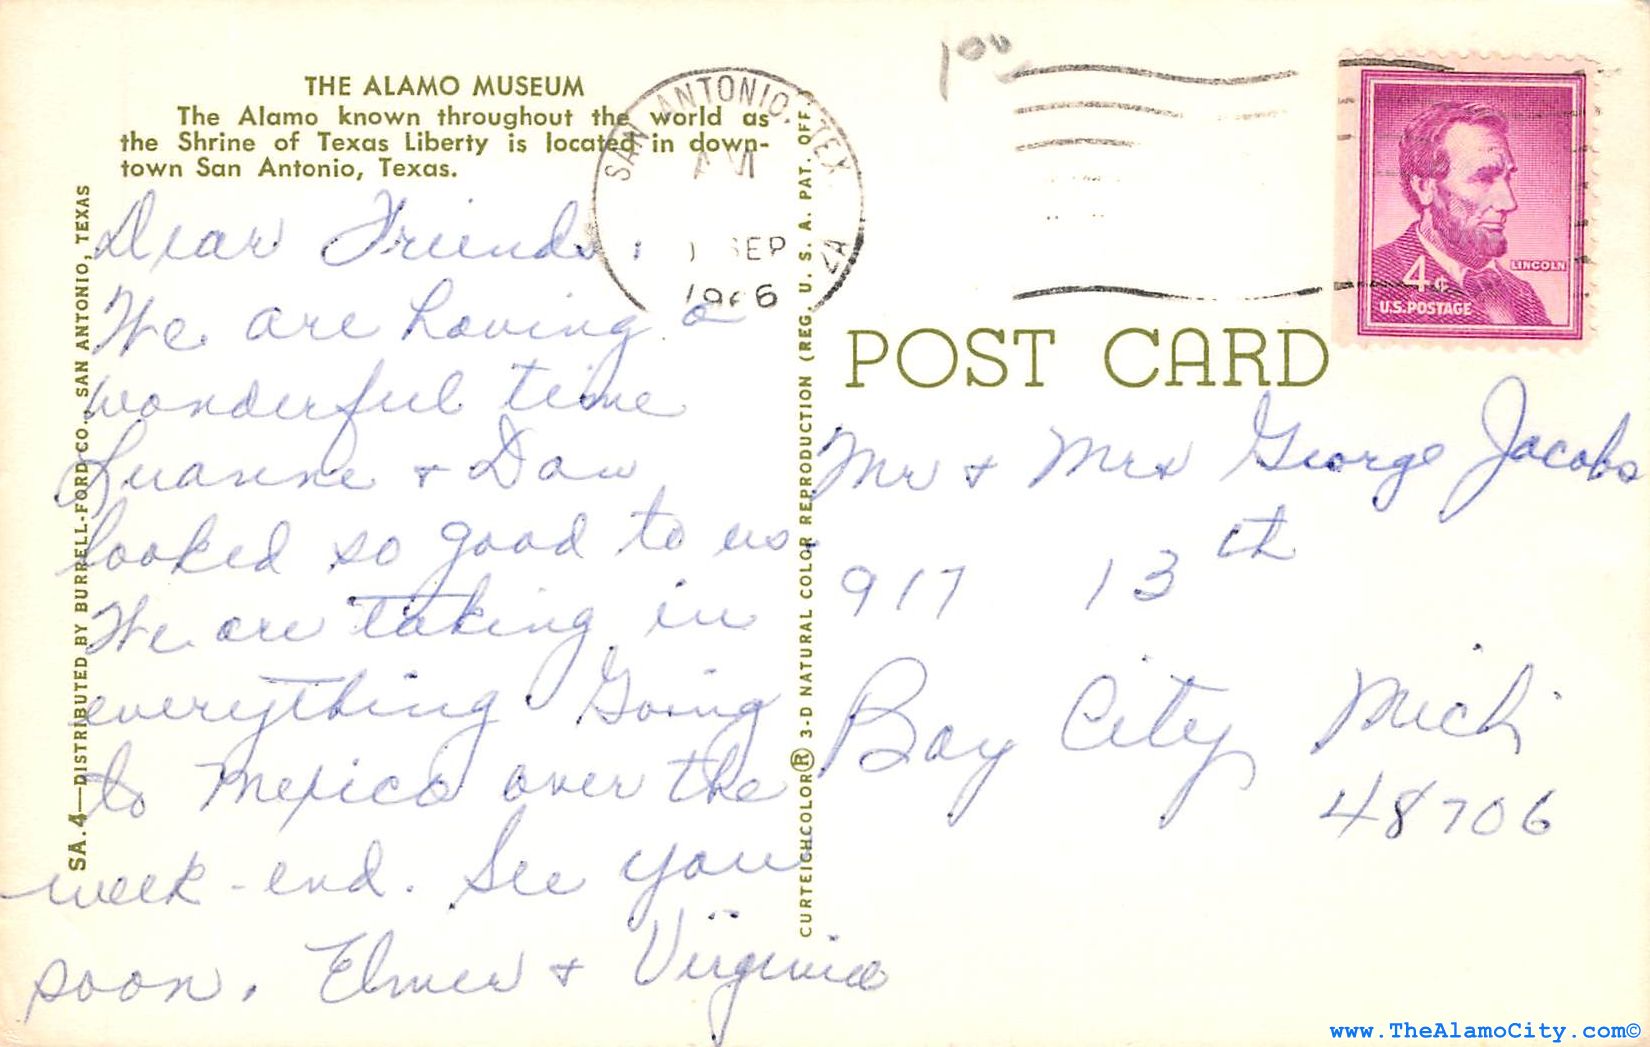 THE ALAMO MUSEUM
The Alamo known throughout the world as
the Shrine of Texas Liberty is located in down-
town San Antonio, Texas.
SA.4—DISTRIBUTED BY BURRELL-FORD CO., SAN ANTONIO, TEXAS
Dear Friends:
We are having a
wonderful time
Luanne + Dan
looked so good to us.
We are taking in
everything. Going
to Mexico over the
week-end. See you
soon. Elmer + Virginia
CURTEICHCOLOR® 3-D NATURAL COLOR REPRODUCTION (REG. U. S. A. PAT. OFF
SAN ANTONIO, TEX
AM
SEP
1966
100
LINCOLN
4¢
U.S. POSTAGE
POST CARD
Mr + Mrs George Jacobs
917 13th
Bay City Mich
48706
www.TheAlamoCity.com©